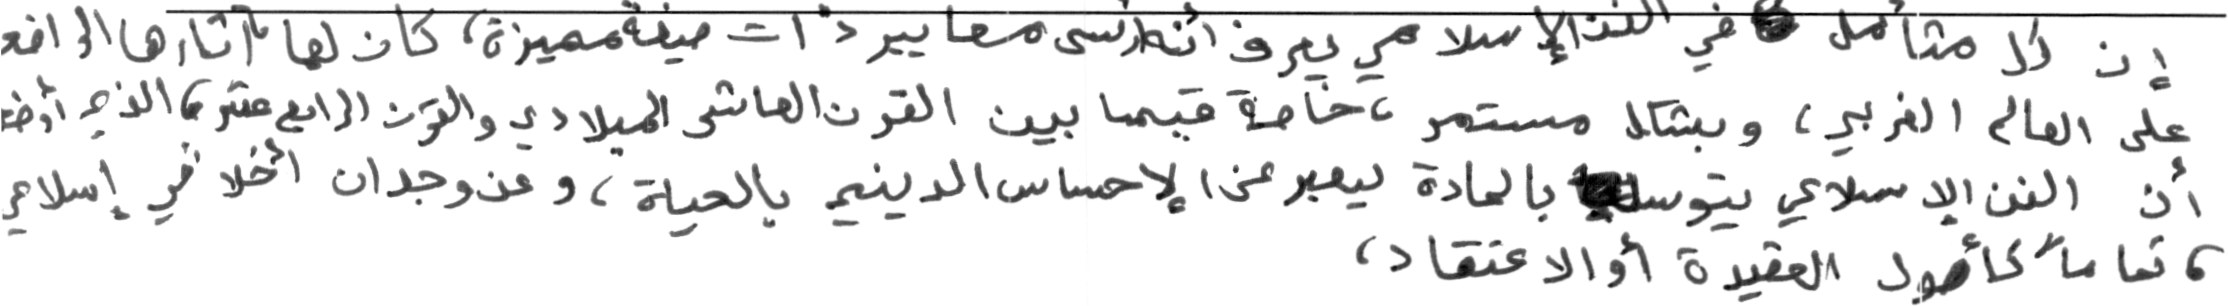 إن كل متأمل في الفن الإسلامي يعرف أنه أرسى معايير ذات صيغة مميزة، كان لها آثارها
على العالم الغربي، وبشكل مستمر، خاصة فيما بين القرن العاشر الميلادي والقرن الرابع عشر، الذي
أن الفن الإسلامي يتوسل بالمادة ليعبر عن الإحساس الديني بالحياة، وعن وجدان أخلاقي إسلامي
، تماماً كأصول العقيدة أو الاعتقاد،